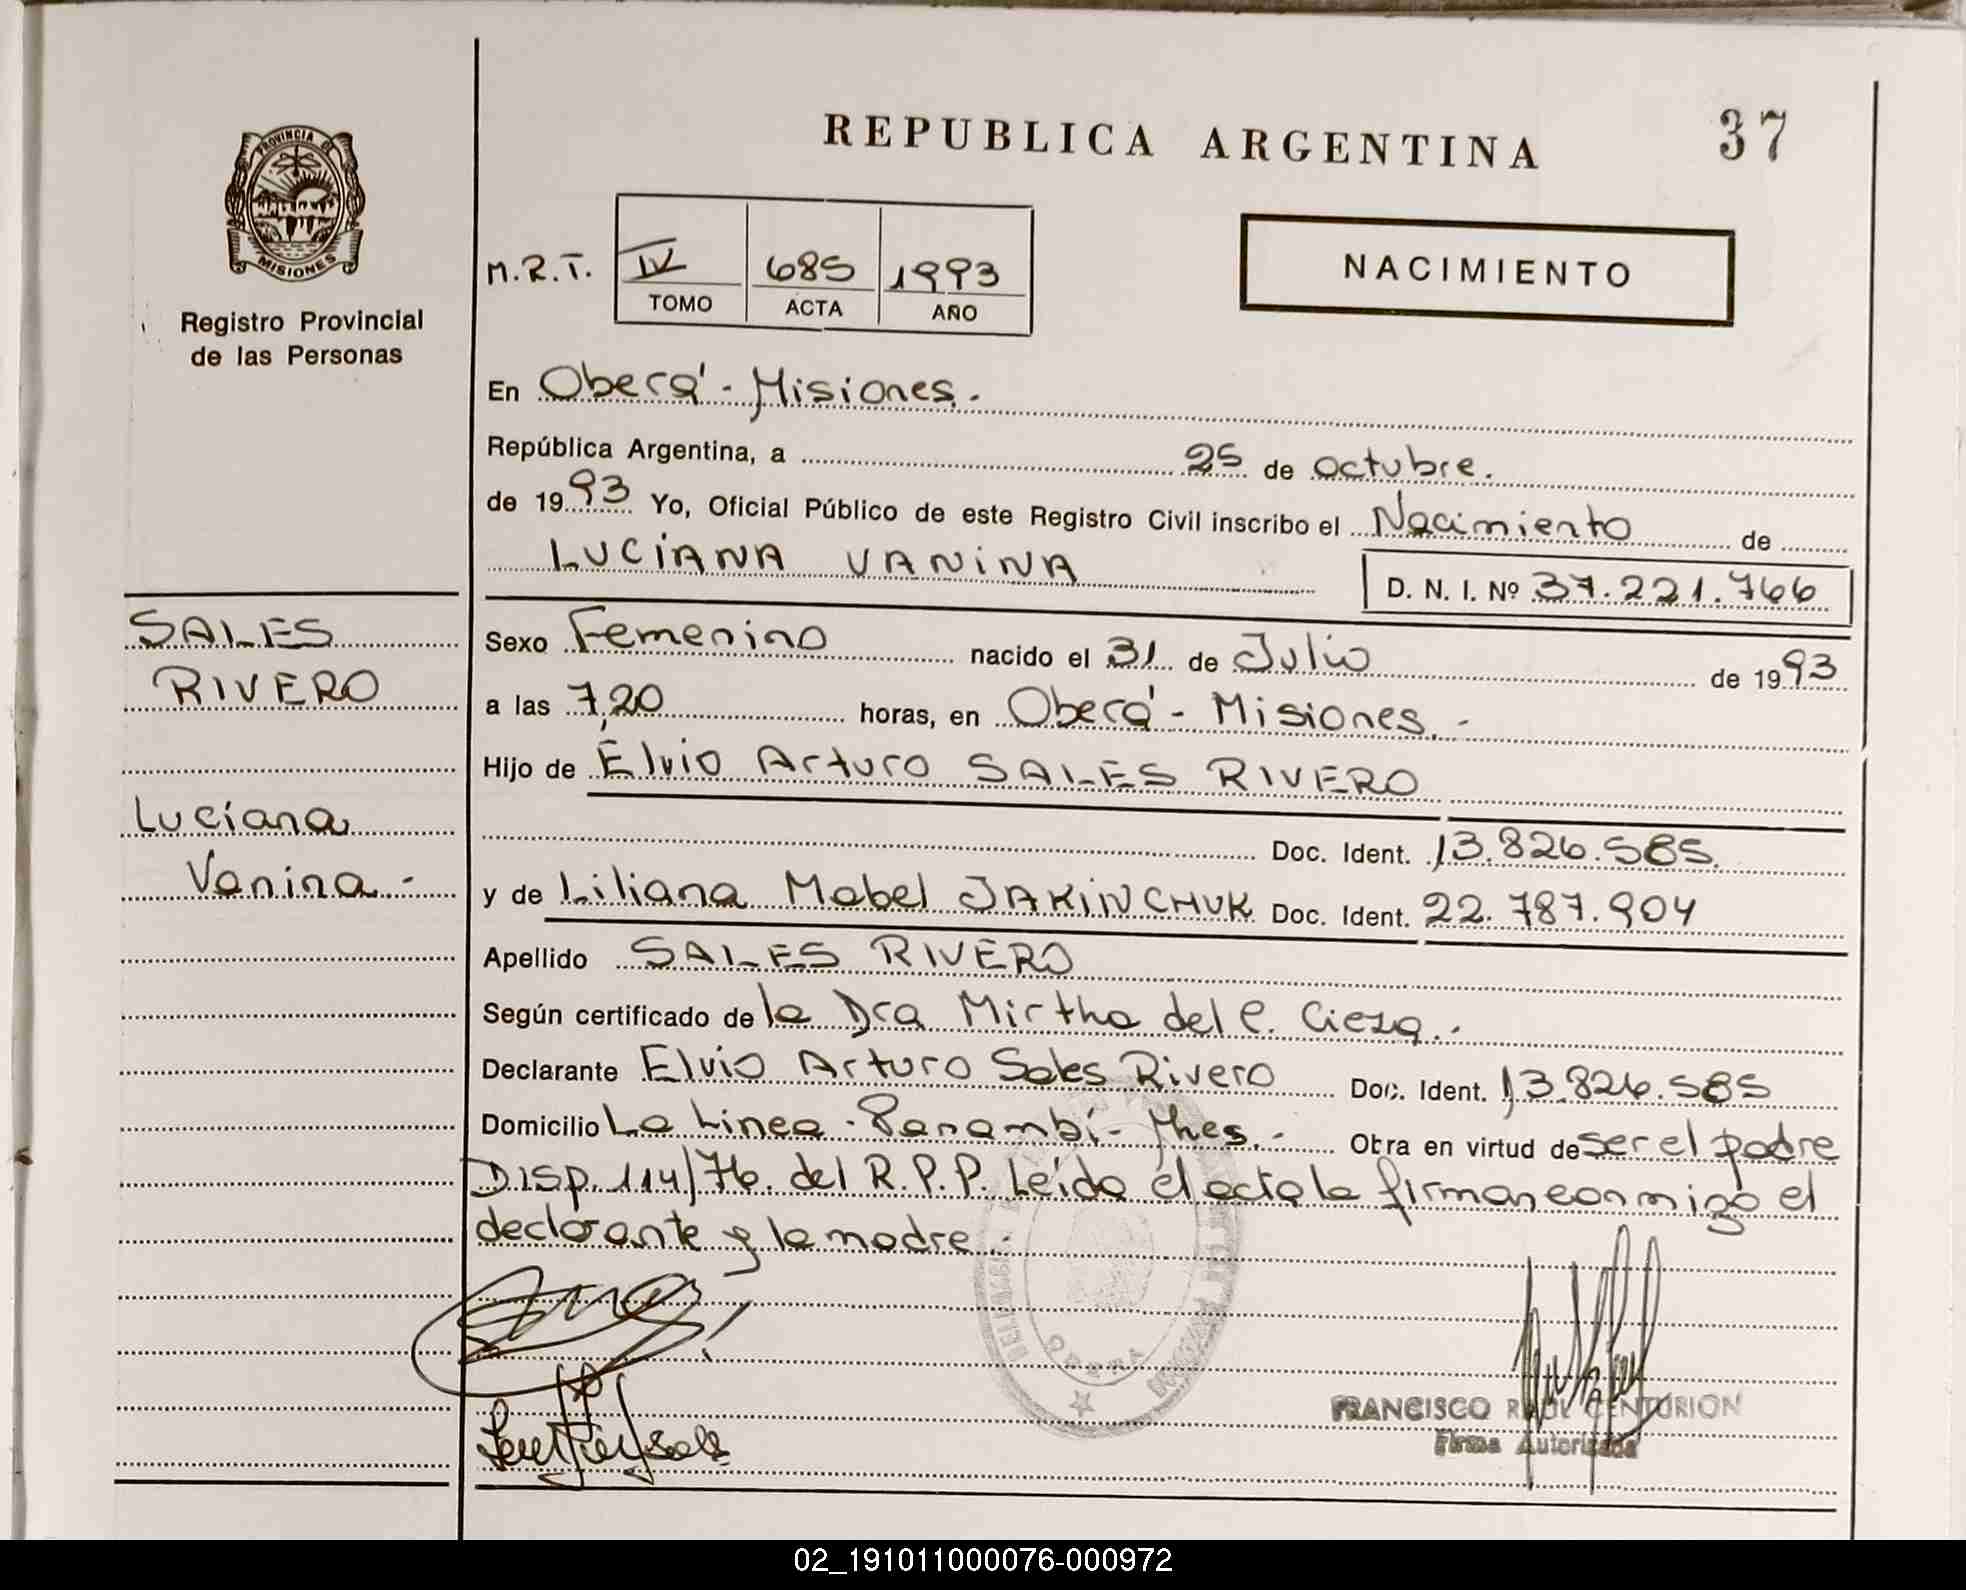 PROVINCIA DE
MISIONES
Registro Provincial
de las Personas
REPUBLICA ARGENTINA
37
M.R.T.
IV 685 1993
TOMO ACTA AÑO
NACIMIENTO
En Oberá - Misiones.
República Argentina, a 25 de octubre.
de 1993 Yo, Oficial Público de este Registro Civil inscribo el Nacimiento de
LUCIANA VANINA
D. N. I. Nº 37.221.766
SALES
RIVERO
Luciana
Vanina.-
Sexo Femenino nacido el 31 de Julio de 1993
a las 7,20 horas, en Oberá - Misiones.-
Hijo de Elvio Arturo SALES RIVERO
Doc. Ident. 13.826.585.
y de Liliana Mabel JAKINCHUK Doc. Ident. 22.787.904
Apellido SALES RIVERO
Según certificado de la Dra Mirtha del C. Cieza.-
Declarante Elvio Arturo Sales Rivero Doc. Ident. 13.826.585
Domicilio La Linea - Panambí - Mnes.- Obra en virtud de ser el padre
DISP. 114/76. del R.P.P. Leída el acta la firman conmigo el
declarante y la madre.-
OBERA
FRANCISCO RAUL CENTURION
Firma Autorizada
02_191011000076-000972